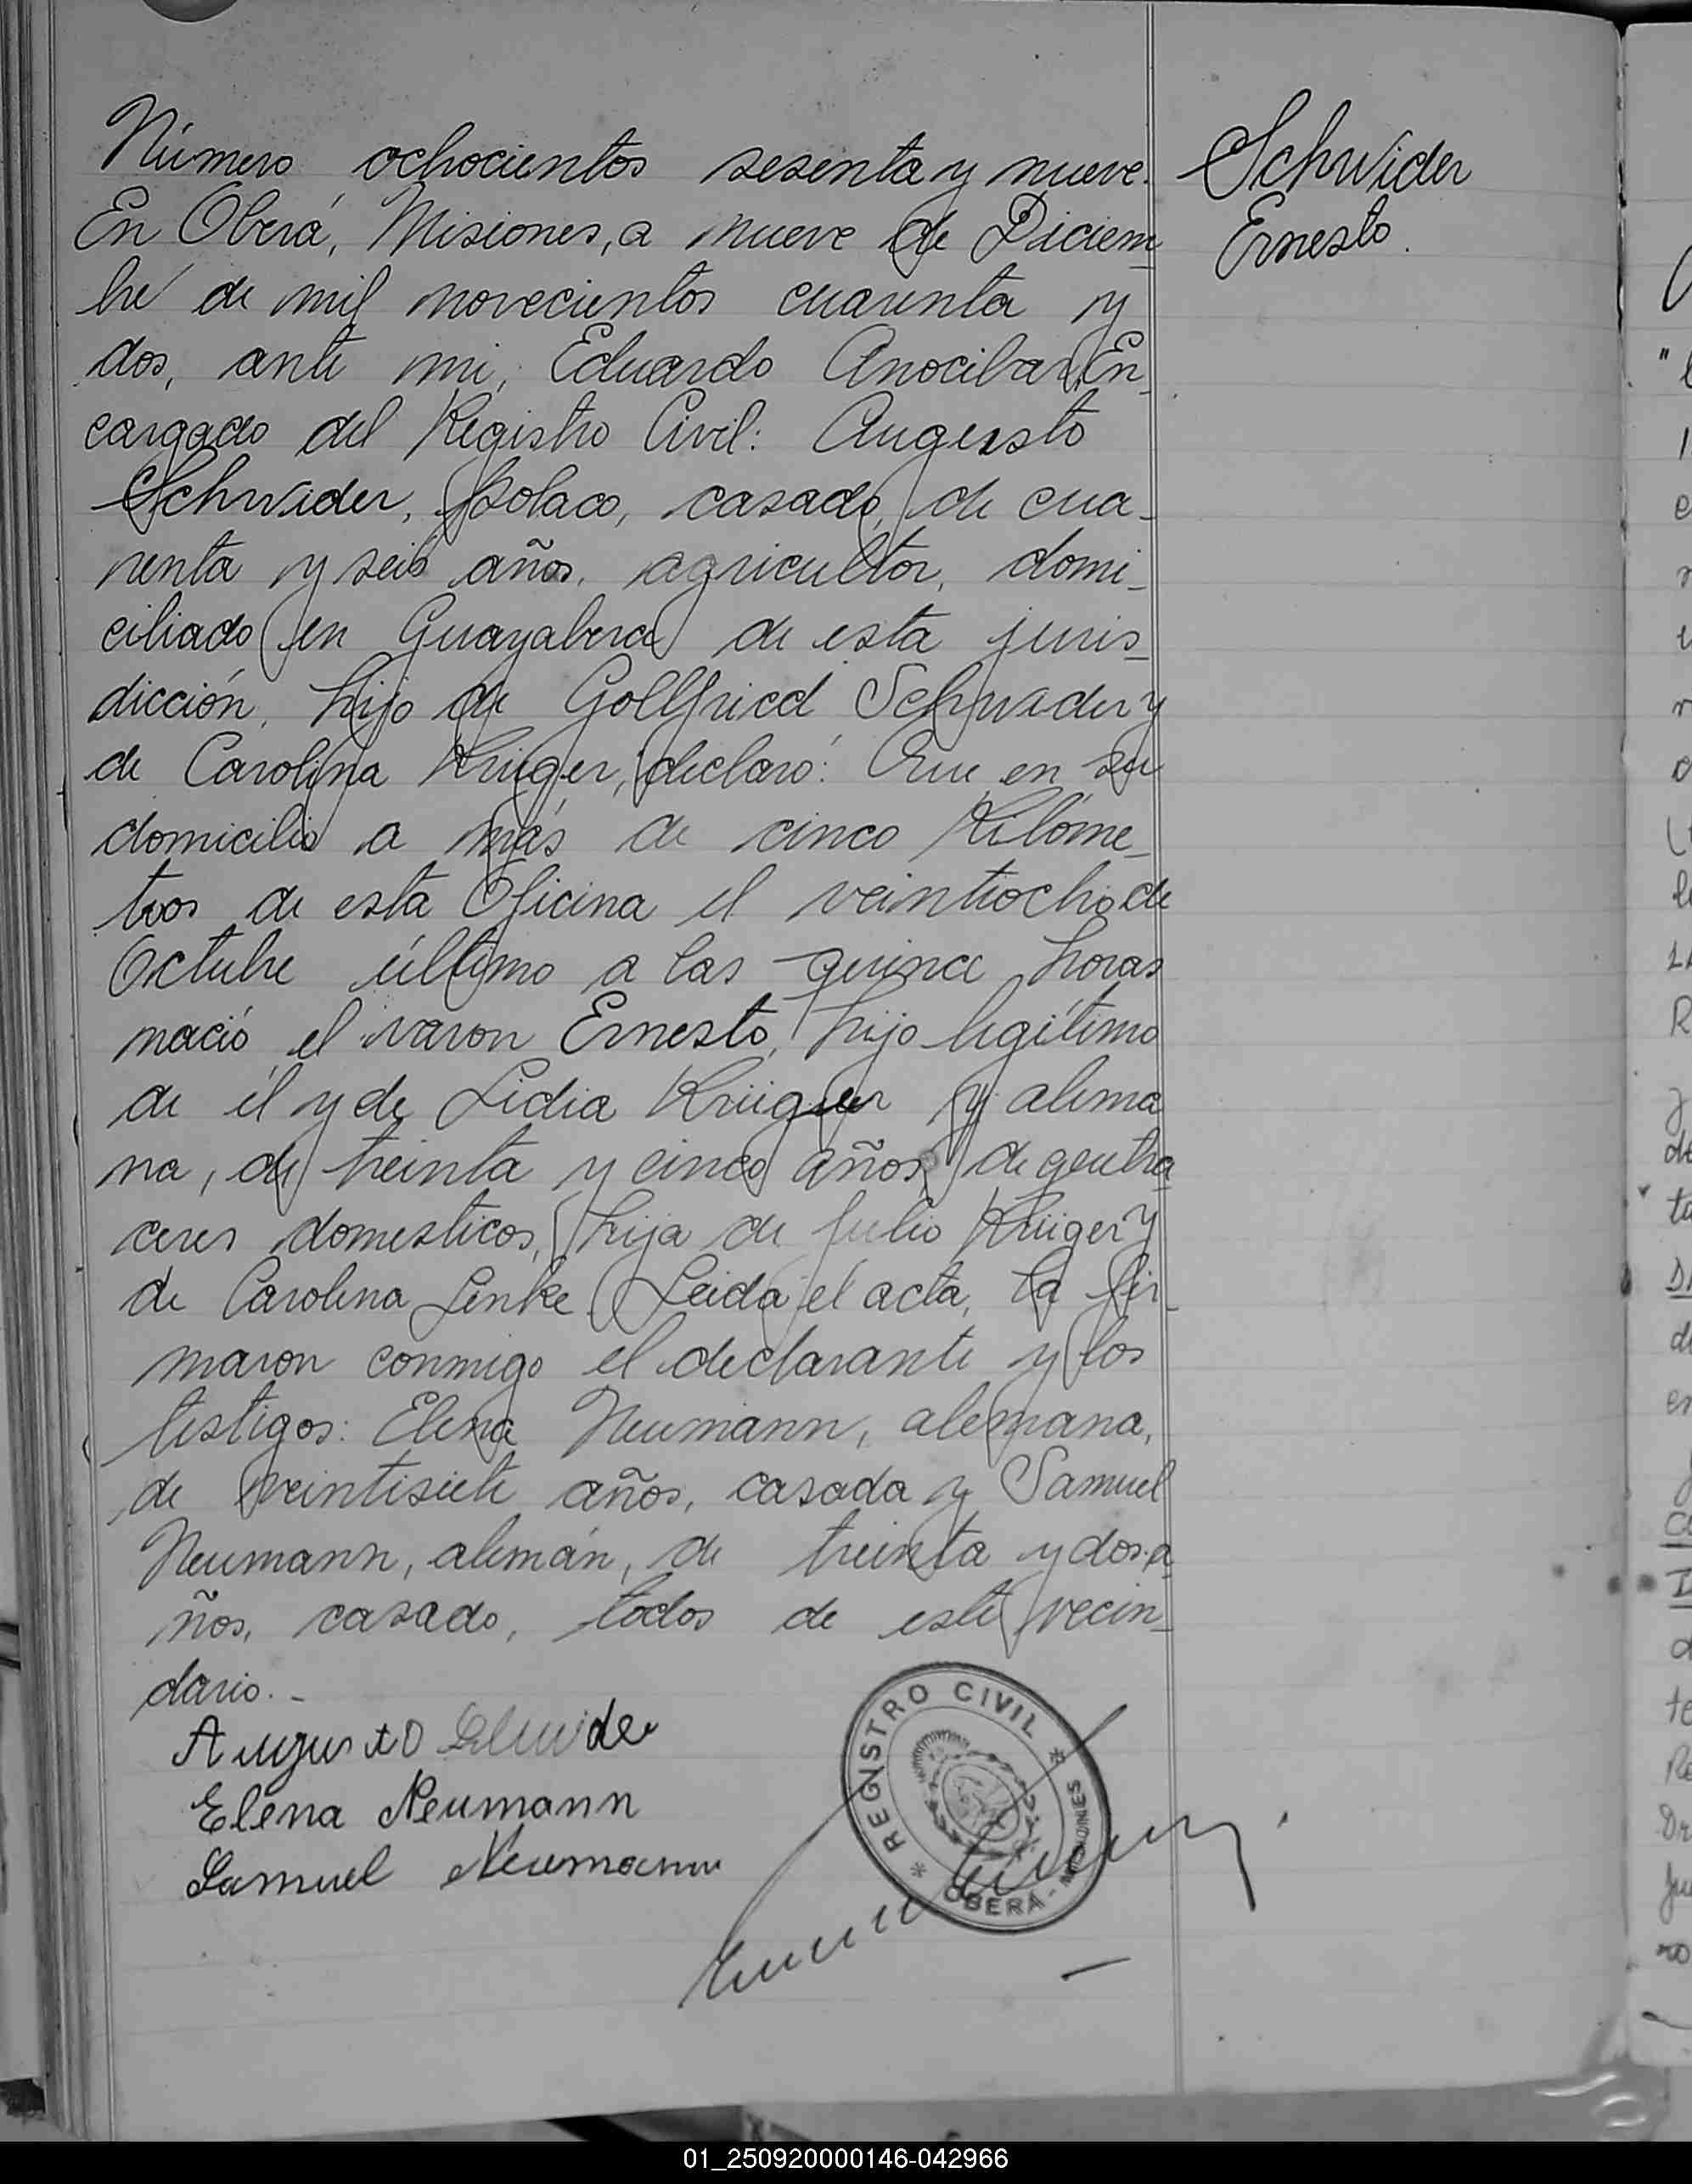 Número ochocientos sesenta y nueve.
En Oberá, Misiones, a nueve de Diciem_
bre de mil novecientos cuarenta y
dos, ante mi, Eduardo Anocibar, En_
cargado del Registro Civil: Augusto
Schwider, polaco, casado, de cua_
renta y seis años, agricultor, domi_
ciliado en Guayabera de esta juris_
dicción, hijo de Gollfried Schwider y
de Carolina Krüger, declaró: Que en su
domicilio a más de cinco Kilóme_
tros de esta Oficina el veintiocho de
Octubre último a las quince horas
nació el varon Ernesto, hijo legítimo
de él y de Lidia Krüger y alema
na, de treinta y cinco años, de queha
ceres domesticos, hija de Julio Krüger y
de Carolina Lenke. Leida el acta, la fir_
maron conmigo el declarante y los
testigos: Elena Neumann, alemana,
de veintisiete años, casada y Samuel
Neumann, alemán, de treinta y dos a
ños, casado, todos de este vecin_
dario. -
Schwider
Ernesto.
Augusto
Elena Neumann
Samuel Neumann
* REGISTRO CIVIL *
OBERÁ - MISIONES
01_250920000146-042966